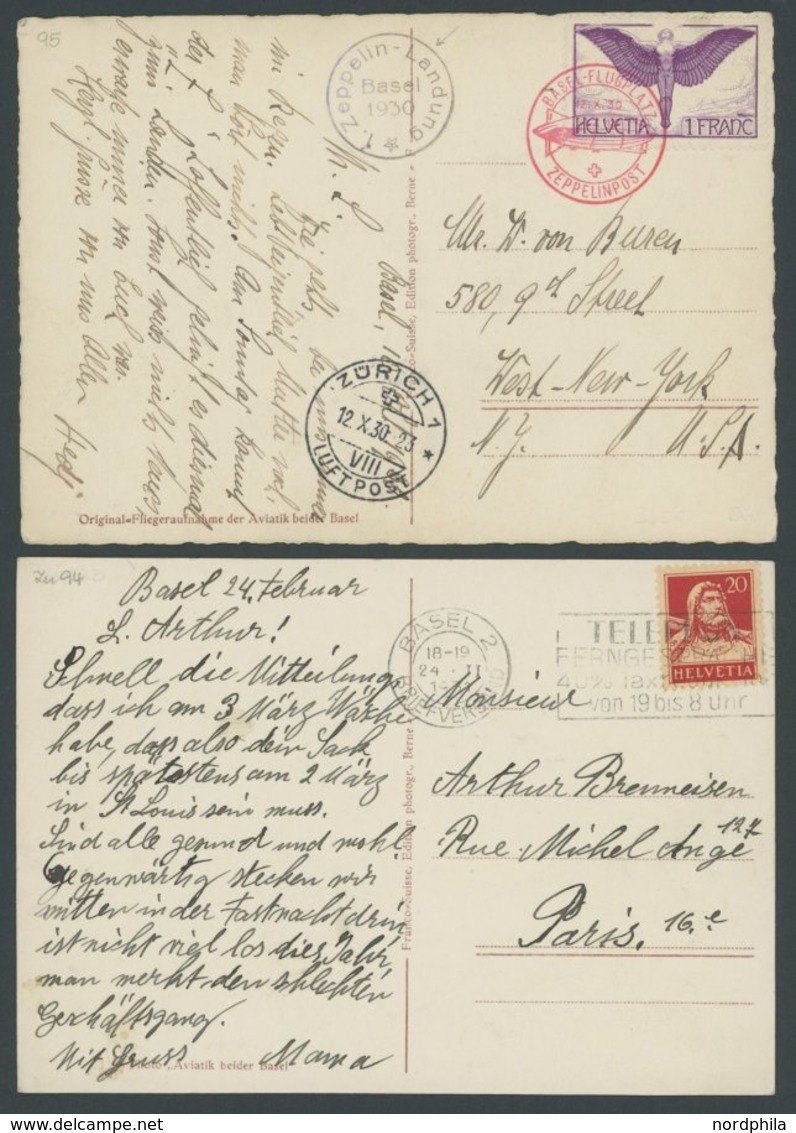 95
1. Zeppelin-Landung
Basel
1930
BASEL-FLUGPLATZ
12.X.30
ZEPPELINPOST
HELVETIA 1 FRANC
M. L. Basel,
Wie jetzt bei
mi Reser.
man hört nichts. Am Sonntag kommt
der Z. Hoffentlich gelingt es diesmal
zum Landen. Sonst weiss nichts Neues,
erwarte immer von Euch
Herzl. Grüsse von uns allen
Hedy
Mr. W. von Buren
580, 9th Street
West-New-York
N.Y. U.S.A.
ZÜRICH 1
12.X.30-23
VIII
LUFTPOST
Franco-Suisse, Edition photogr., Berne
Original-Fliegeraufnahme der Aviatik beider Basel
Zu 94
Basel 24. Februar
L. Arthur!
Schnell die Mitteilung
dass ich am 3 März Wäsche
habe, dass also dein Sack
bis spätestens am 2 März
in St Louis sein muss.
Sind alle gesund und wohl
Gegenwärtig stecken wir
mitten in der Fastnacht drin
ist nicht viel los dies Jahr
man merkt den schlechten
Geschäftsgang.
Mit Gruss Mama
Photo Aviatik beider Basel
Franco-Suisse, Edition photogr., Berne
BASEL 2
18-19
24.II
BRIEFVERSAND
TELEPHON
FERNGESPRÄCHE
40% Tax
von 19 bis 8 Uhr
20
HELVETIA
Monsieur
Arthur Brenneisen
Rue Michel Ange 127
Paris. 16.e